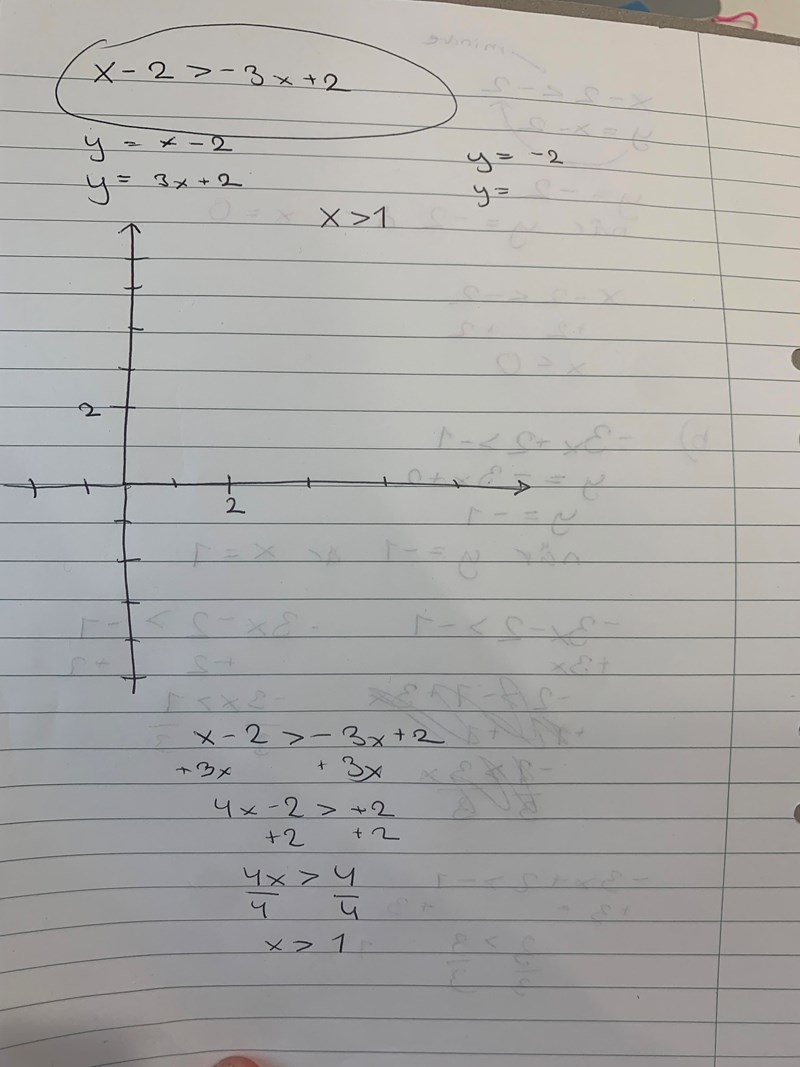 x - 2 > -3x + 2
y = x - 2
y = -2
y = 3x + 2
y =
x > 1
2
2
x - 2 > -3x + 2
+3x +3x
4x - 2 > +2
+2 +2
4x > 4
4 4
x > 1